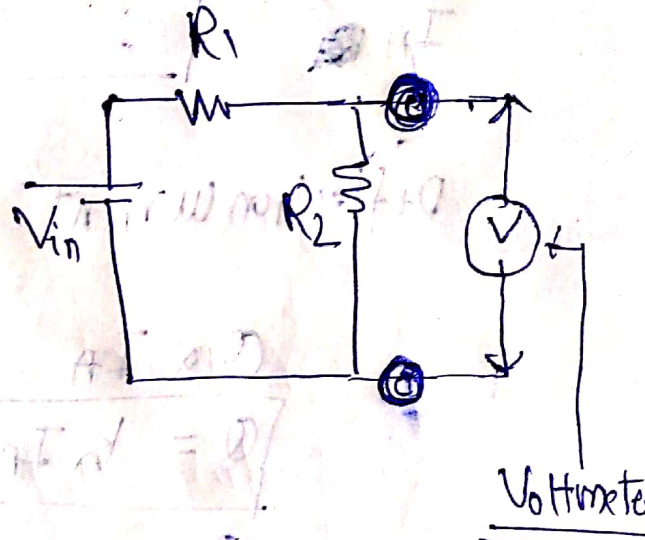 R1
Vin
R2
V
Voltmete